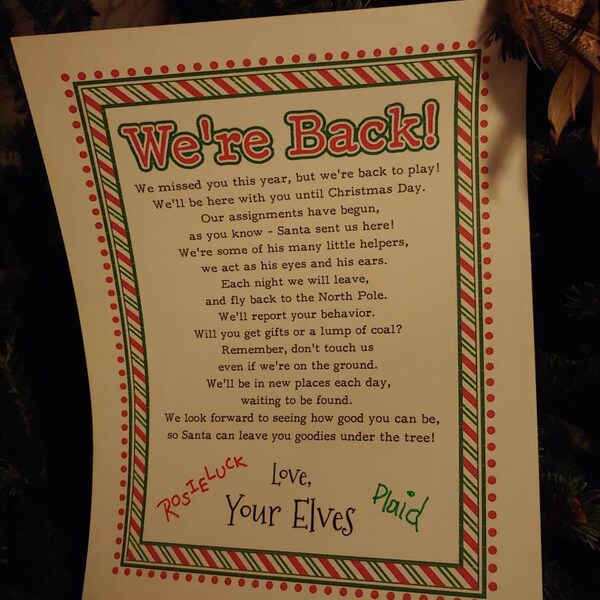 We're Back!
We missed you this year, but we're back to play!
We'll be here with you until Christmas Day.
Our assignments have begun,
as you know - Santa sent us here!
We're some of his many little helpers,
we act as his eyes and his ears.
Each night we will leave,
and fly back to the North Pole.
We'll report your behavior.
Will you get gifts or a lump of coal?
Remember, don't touch us
even if we're on the ground.
We'll be in new places each day,
waiting to be found.
We look forward to seeing how good you can be,
so Santa can leave you goodies under the tree!
Love,
Your Elves
ROSIELUCK
Plaid